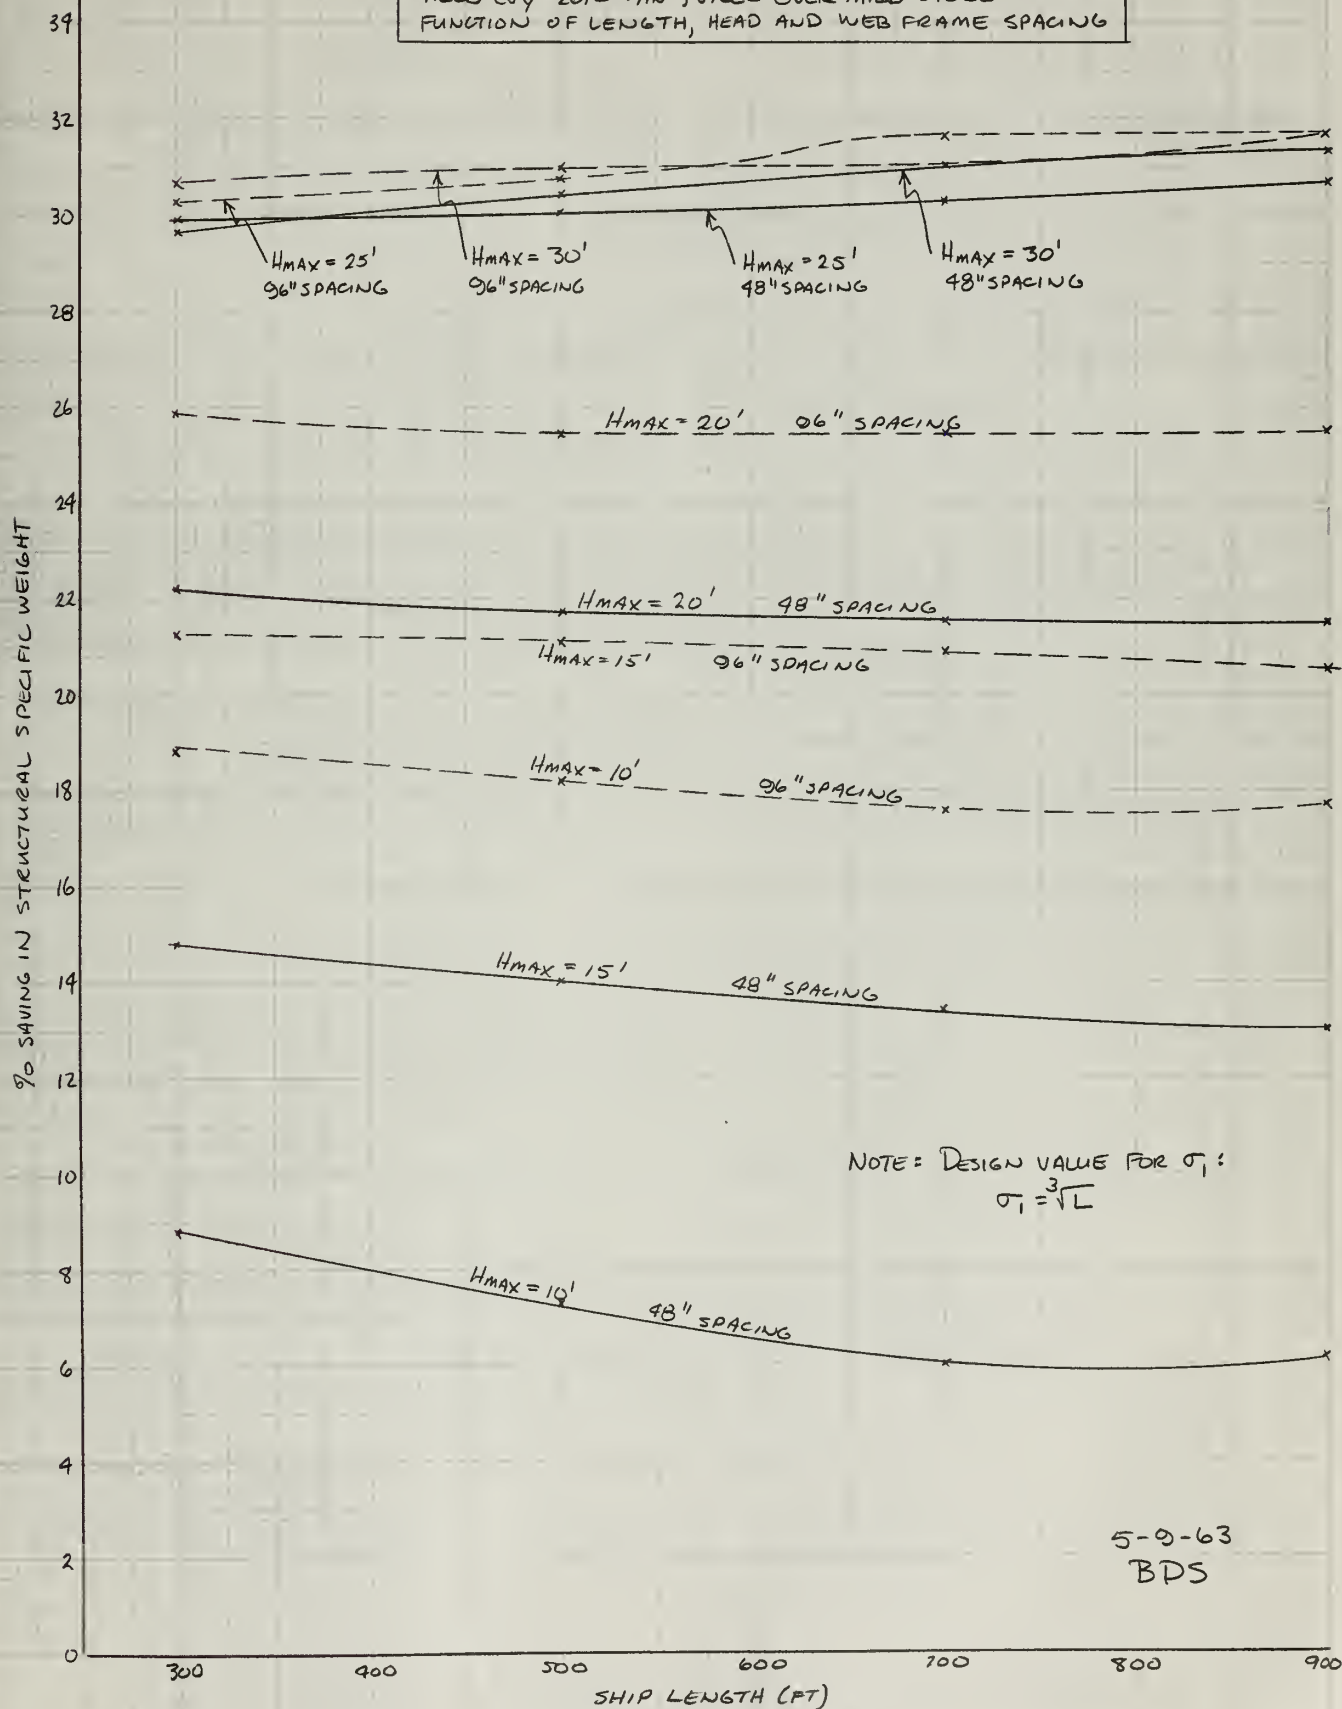 FUNCTION OF LENGTH, HEAD AND WEB FRAME SPACING
34
32
30
28
26
24
22
20
18
16
14
12
10
8
6
4
2
0
% SAVING IN STRUCTURAL SPECIFIC WEIGHT
HMAX = 25'
96" SPACING
HMAX = 30'
96" SPACING
HMAX = 25'
48" SPACING
HMAX = 30'
48" SPACING
HMAX = 20' 96" SPACING
HMAX = 20' 48" SPACING
HMAX = 15' 96" SPACING
HMAX = 10' 96" SPACING
HMAX = 15' 48" SPACING
NOTE: DESIGN VALUE FOR σ₁:
σ₁ = ³√L
HMAX = 10' 48" SPACING
5-9-63
BDS
300 400 500 600 700 800 900
SHIP LENGTH (FT)